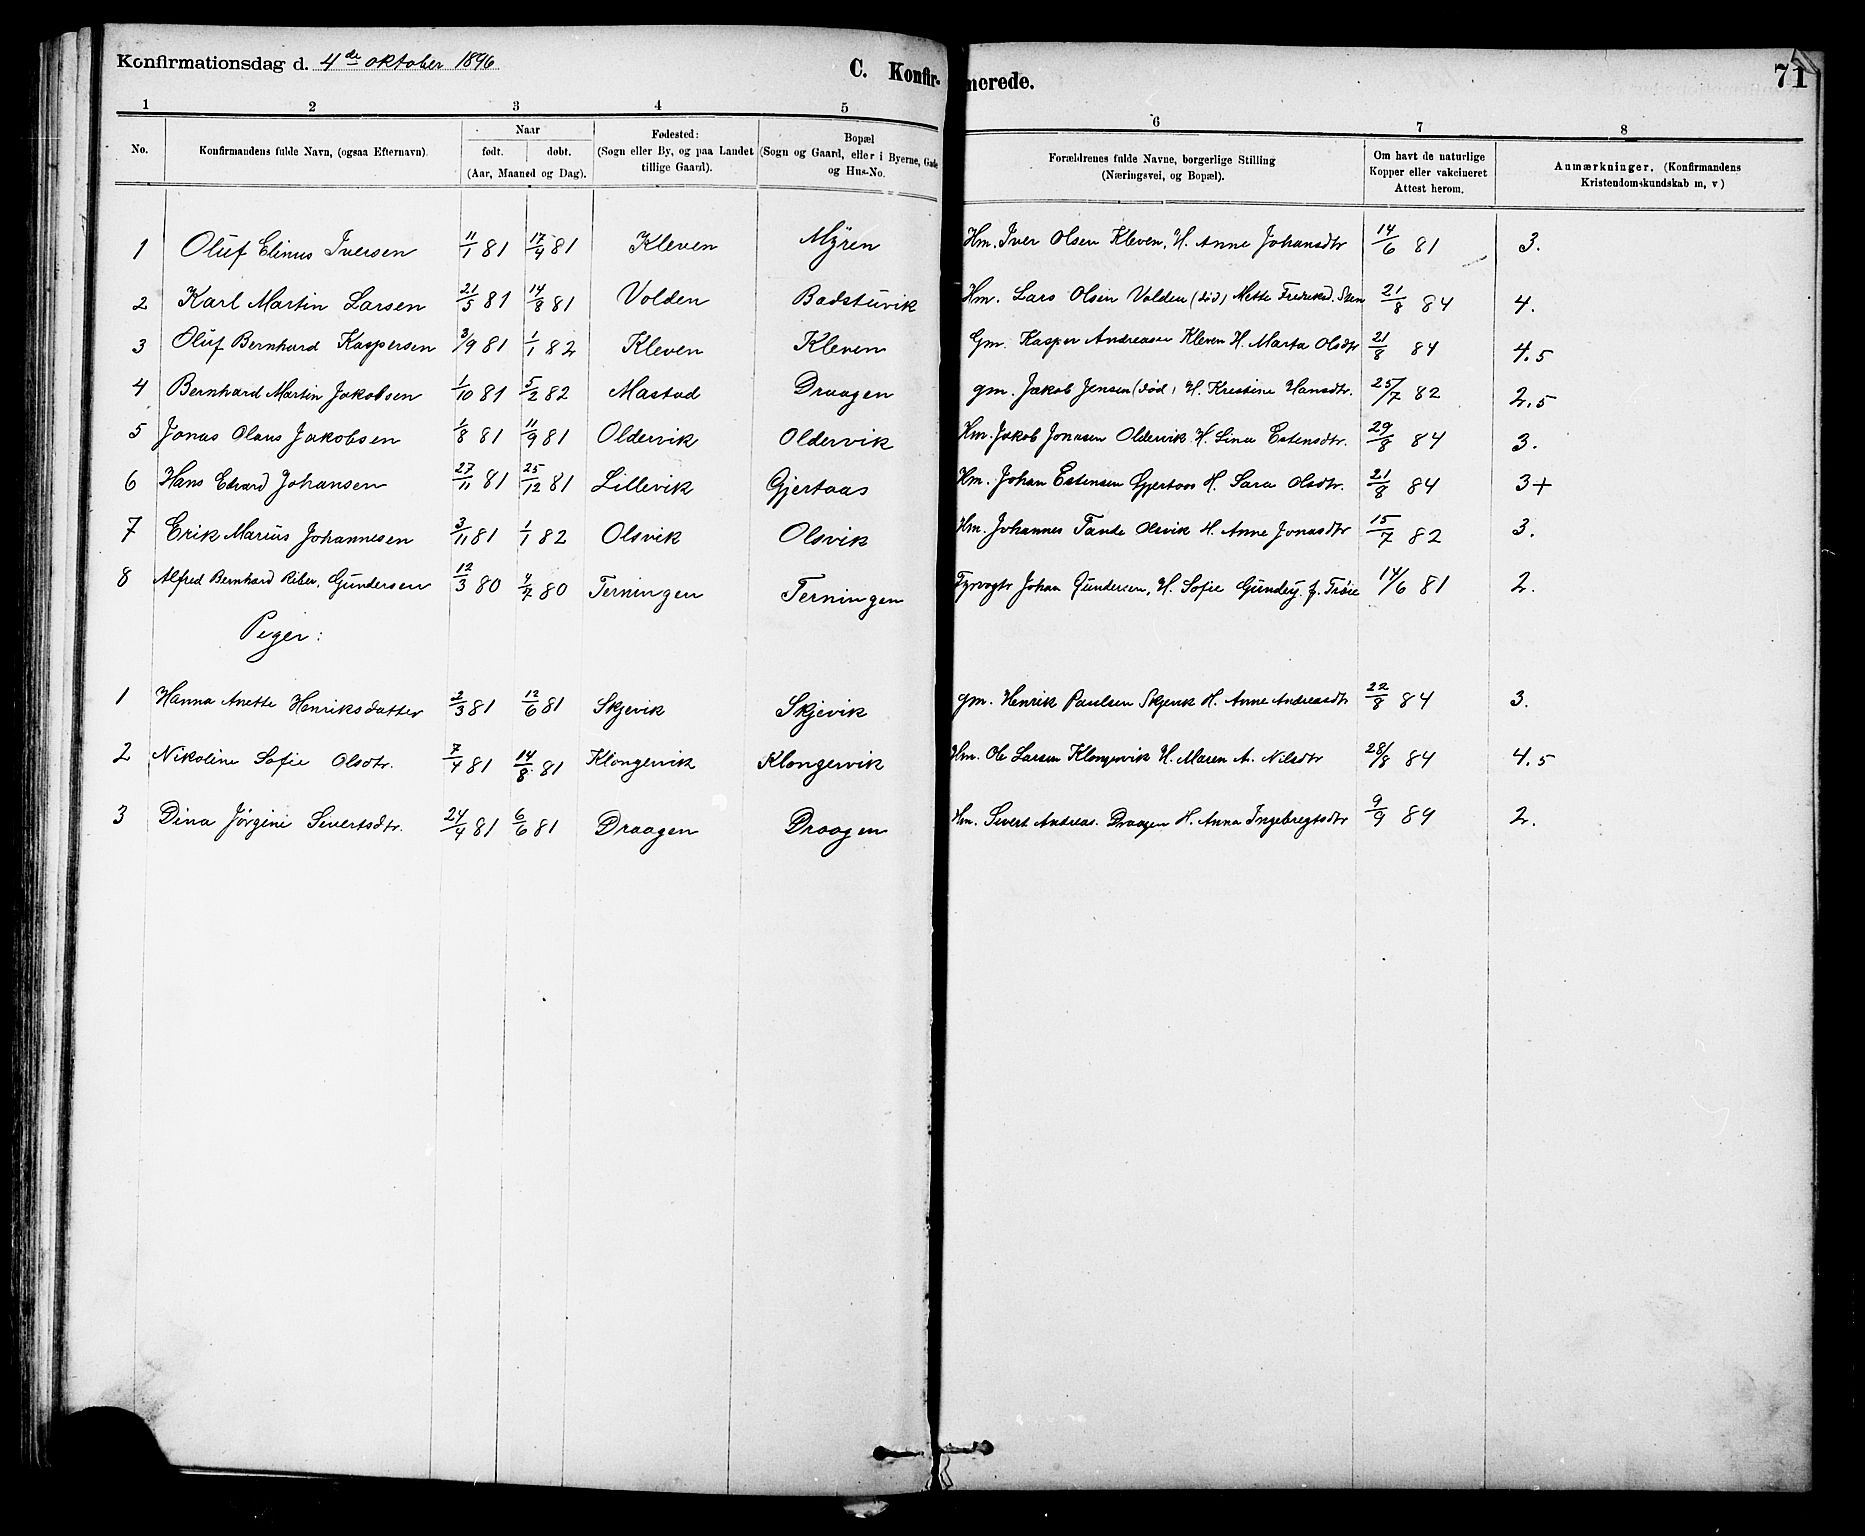 Konfirmationsdag d. 4de oktober 1896
C. Konfirmerede.
71
1 2 3 4 5 6 7 8
No. | Konfirmandens fulde Navn, (ogsaa Efternavn). | Naar født. døbt. (Aar, Maaned og Dag). | Fødested: (Sogn eller By, og paa Landet tillige Gaard). | Bopæl (Sogn og Gaard, eller i Byerne, Gade og Hus-No. | Forældrenes fulde Navne, borgerlige Stilling (Næringsvei, og Bopæl). | Om havt de naturlige Kopper eller vakcineret Attest herom. | Anmærkninger, (Konfirmandens Kristendomskundskab m, v)
1 Oluf Elinus Iversen 11/1 81 17/4 81 Kleven Myren Hm. Iver Olsen Kleven, H. Anne Johansdtr 14/6 81 3.
2 Karl Martin Larsen 21/5 81 14/8 81 Volden Badstuvik Hm. Lars Olsen Volden (død) Mette Fredriksd. 21/8 84 4.
3 Oluf Bernhard Kaspersen 3/9 81 1/1 82 Kleven Kleven Gm. Kasper Andreasen Kleven H. Marta Olsdtr 21/8 84 4.5
4 Bernhard Martin Jakobsen 1/10 81 5/2 82 Mastad Draagen gm. Jakob Jensen (død) H. Kristine Hansdtr. 25/7 82 2.5
5 Jonas Olaus Jakobsen 1/8 81 11/9 81 Oldervik Oldervik Hm. Jakob Jonasen Oldervik H. Lina Estensdtr. 29/8 84 3.
6 Hans Edvard Johansen 27/11 81 25/12 81 Lillevik Gjertaas Hm. Johan Estensen Gjertaas H. Sara Olsdtr. 21/8 84 3+
7 Erik Marius Johannesen 3/11 81 1/1 82 Olsvik Olsvik Hm. Johannes Tande Olsvik H. Anne Jonasdtr 15/7 82 3.
8 Alfred Bernhard Riber. Gundersen 12/3 80 4/7 80 Terningen Terningen Fyrvogtr Johan Gundersen, H. Sofie f. Trøie 14/6 81 2.
Piger:
1 Hanna Anette Henriksdatter 2/3 81 12/6 81 Skjevik Skjevik gm. Henrik Paulsen Skjevik H. Anne Andreasdtr 22/8 84 3.
2 Nikoline Sofie Olsdtr. 7/4 81 14/8 81 Klongervik Klongervik Hm. Ole Larsen Klongervik H. Maren A. Nilsdtr 28/8 84 4.5
3 Dina Jørgine Sivertsdtr. 24/4 81 6/6 81 Draagen Draagen Hm. Sivert Andreas. Draagen H. Anna Ingebregtsdtr 9/9 84 2.